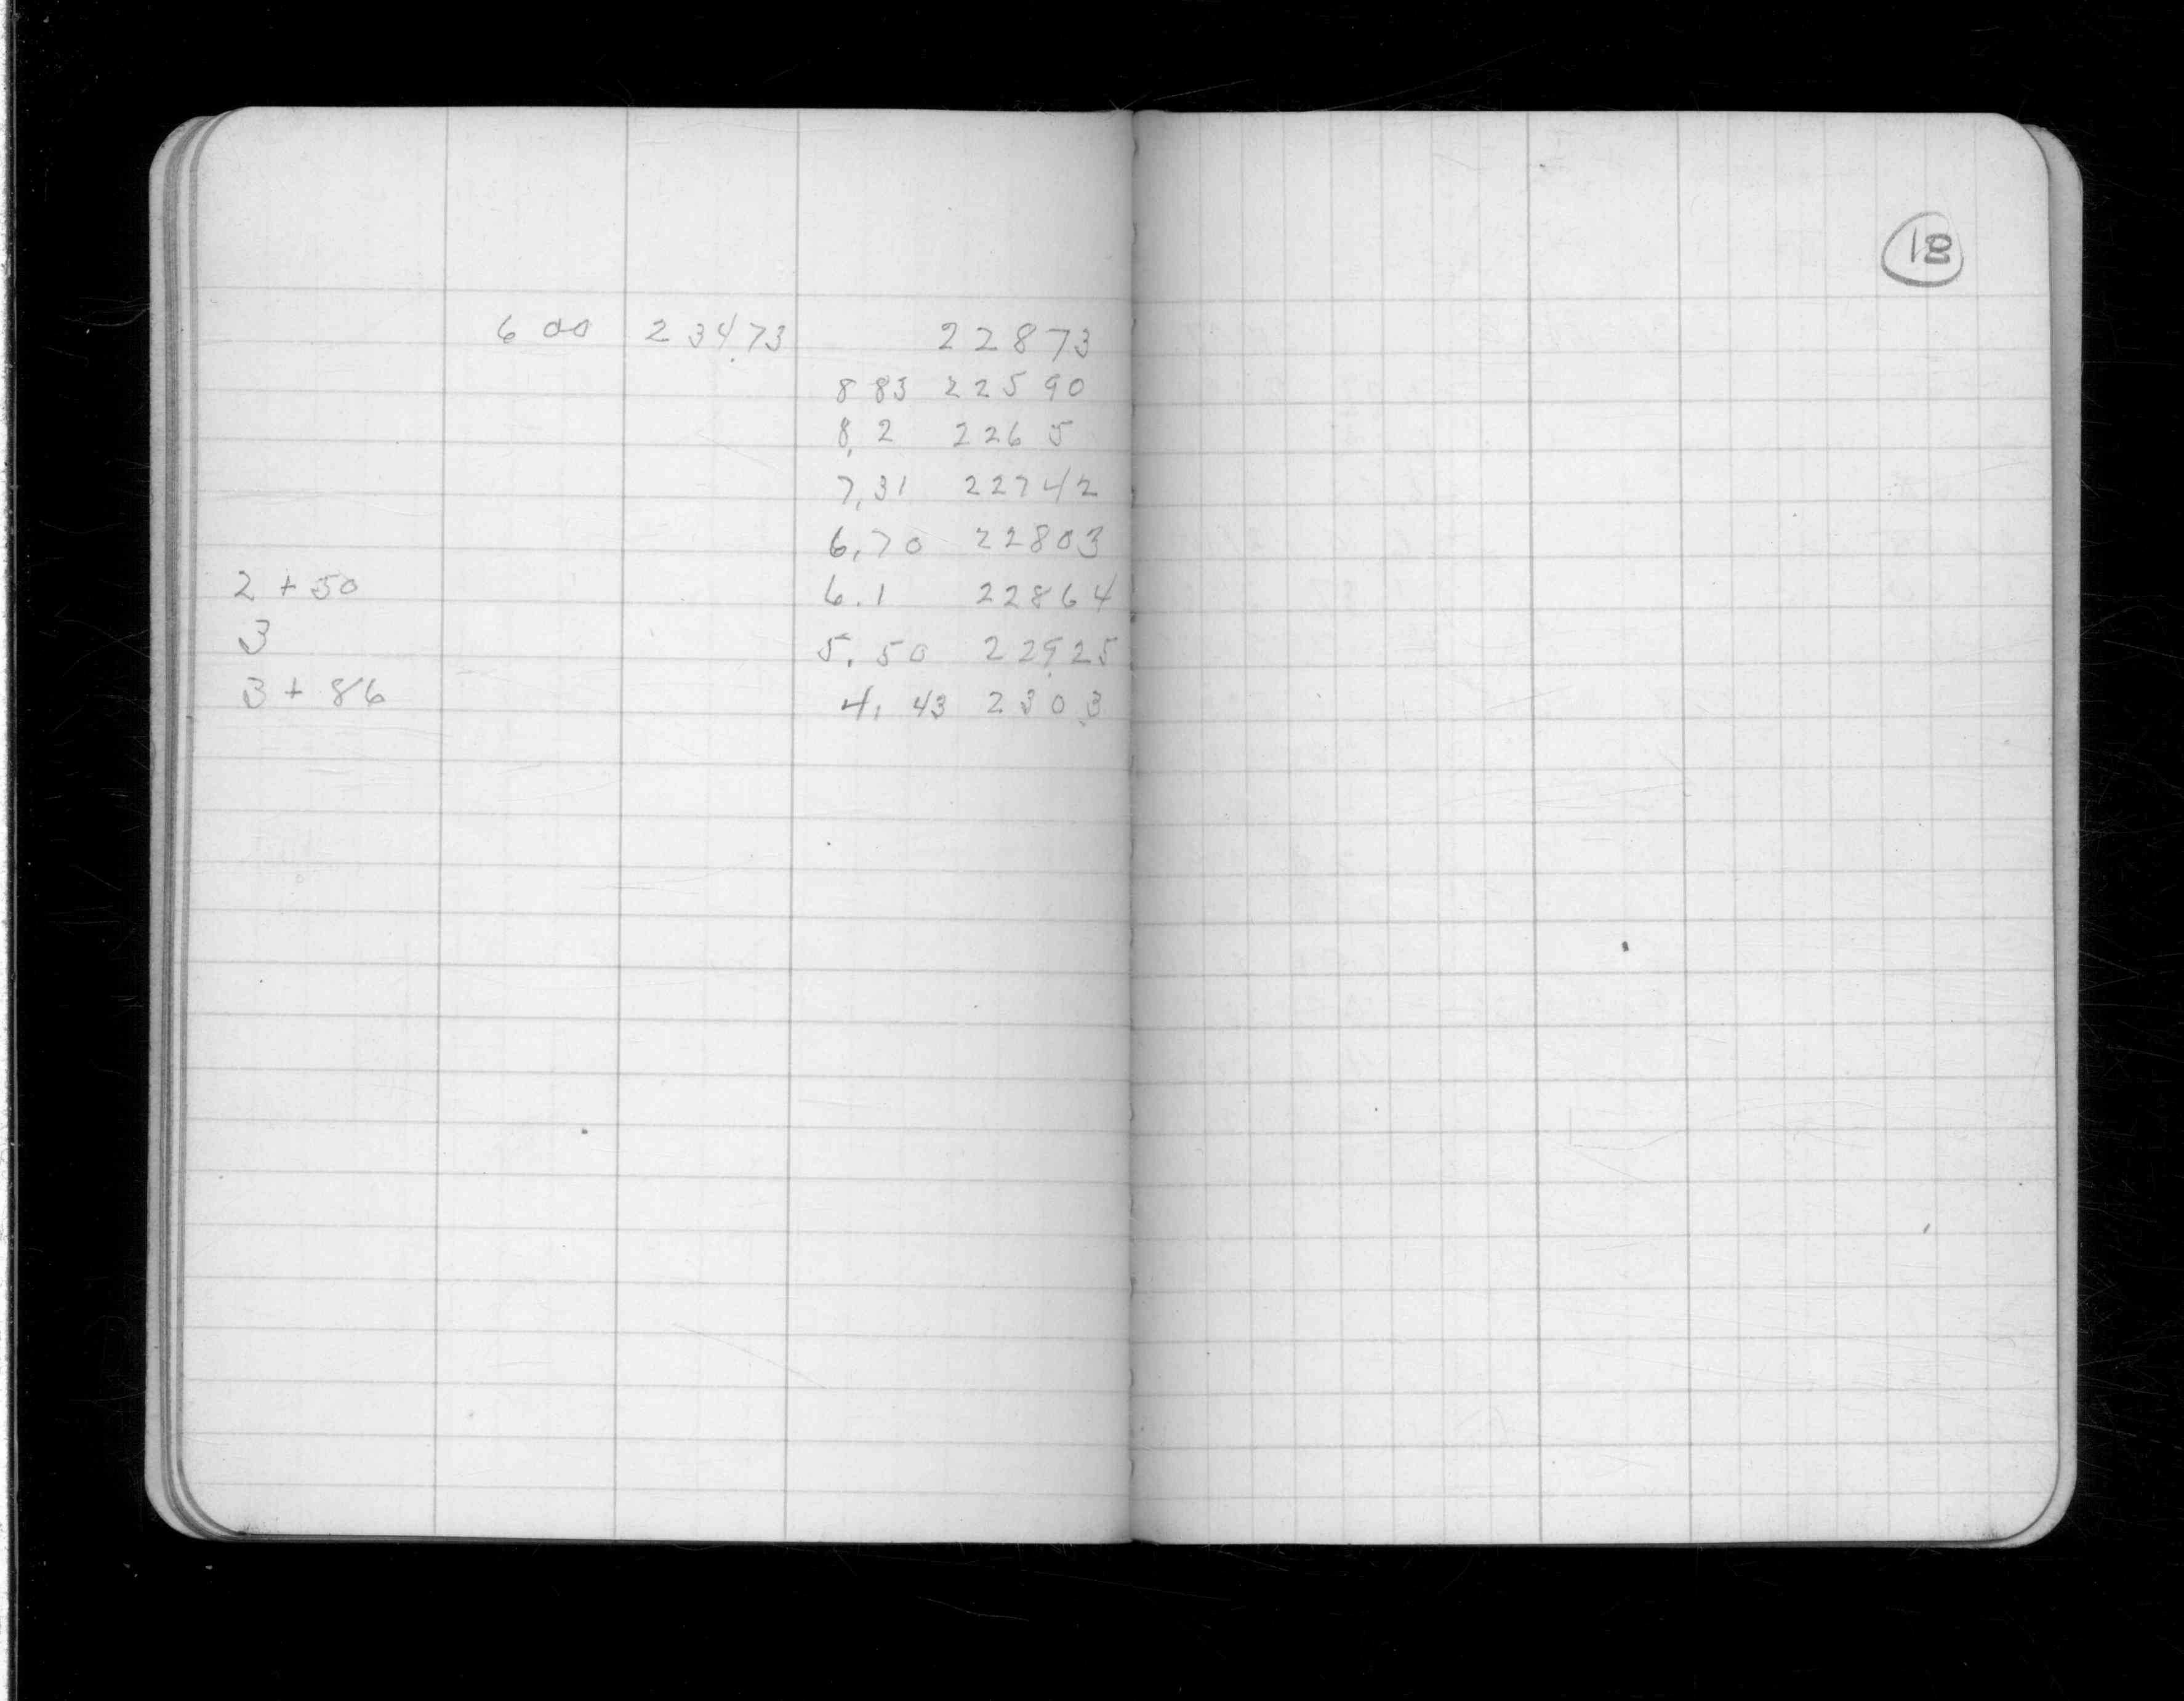 6 00 234.73 22873
8 83 225 90
8.2 226 5
7.31 227 42
6.70 22803
2 + 50 6.1 22864
3 5.50 229.25
3 + 86 4.43 230.3